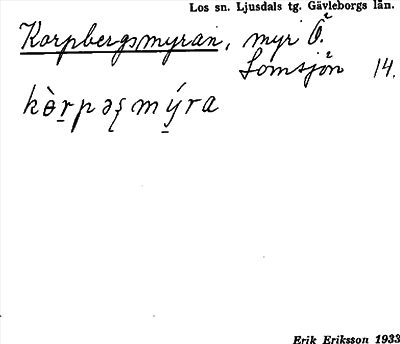 Los sn. Ljusdals tg. Gävleborgs län.
Korpbergsmyran, myr Ö.
Lomsjön 14.
Erik Eriksson 1933